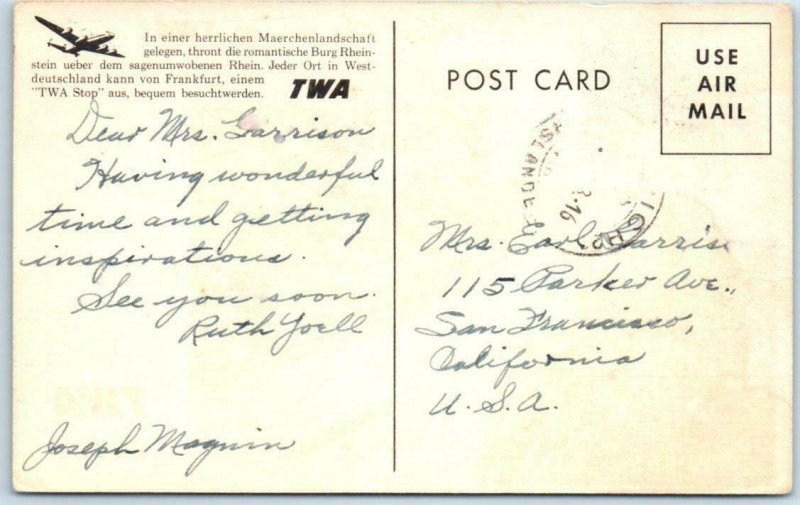 In einer herrlichen Maerchenlandschaft
gelegen, thront die romantische Burg Rhein-
stein ueber dem sagenumwobenen Rhein. Jeder Ort in West-
deutschland kann von Frankfurt, einem
"TWA Stop" aus, bequem besuchtwerden.
TWA
Dear Mrs. Garrison
Having wonderful
time and getting
inspirations.
See you soon.
Ruth Yoell
Joseph Magnin
POST CARD
USE
AIR
MAIL
Mrs. Earl Garris
115 Parker Ave.,
San Francisco,
California
U.S.A.